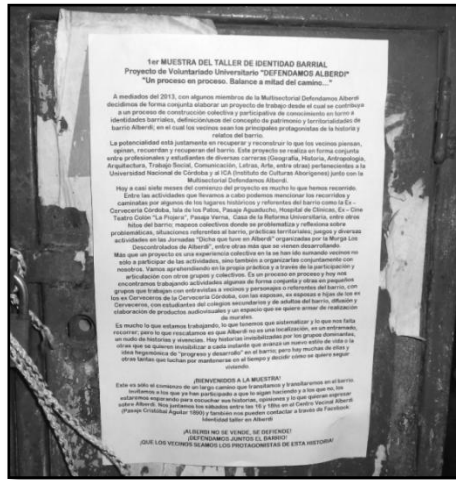 1er MUESTRA DEL TALLER DE IDENTIDAD BARRIAL
Proyecto de Voluntariado Universitario "DEFENDAMOS ALBERDI"
"Un proceso en proceso. Balance a mitad del camino..."
A mediados del 2013, con algunos miembros de la Multisectorial Defendamos Alberdi
decidimos de forma conjunta elaborar un proyecto de trabajo desde el cual se contribuya
a un proceso de construcción colectiva y participativa de conocimiento en torno a
identidades barriales, definición/usos del concepto de patrimonio y territorialidades de
barrio Alberdi; en el cual los vecinos sean los principales protagonistas de la historia y
relatos del barrio.
La potencialidad está justamente en recuperar y reconstruir lo que los vecinos piensan,
opinan, recuerdan y recuperan del barrio. Este proyecto se realiza en forma conjunta
entre profesionales y estudiantes de diversas carreras (Geografía, Historia, Antropología,
Arquitectura, Trabajo Social, Comunicación, Letras, Arte, entre otras) pertenecientes a la
Universidad Nacional de Córdoba y al ICA (Instituto de Culturas Aborígenes) junto con la
Multisectorial Defendamos Alberdi.
Hoy a casi siete meses del comienzo del proyecto es mucho lo que hemos recorrido.
Entre las actividades que llevamos a cabo podemos mencionar los recorridos y
caminatas por algunos de los lugares históricos y referentes del barrio como la Ex -
Cervecería Córdoba, Isla de los Patos, Pasaje Aguaducho, Hospital de Clínicas, Ex - Cine
Teatro Colón "La Piojera", Pasaje Verna, Casa de la Reforma Universitaria, entre otros
hitos del barrio, mapeos colectivos donde se problematiza y reflexiona sobre
problemáticas, situaciones referentes al barrio, prácticas territoriales; juegos y diversas
actividades en las Jornadas "Dicha que tuve en Alberdi" organizadas por la Murga Los
Descontrolados de Alberdi, entre otras más que se vienen desarrollando.
Más que un proyecto es una experiencia colectiva en la se han ido sumando vecinos no
sólo a participar de las actividades, sino también a organizarlas conjuntamente con
nosotros. Vamos aprehendiendo en la propia práctica y a través de la participación y
articulación con otros grupos y colectivos. Es un proceso en proceso y hoy nos
encontramos trabajando actividades algunas de forma conjunta y otras en pequeños
grupos que trabajan con entrevistas a vecinos y personajes o referentes del barrio, con
los ex Cerveceros de la Cervecería Córdoba, con las esposas, ex esposas e hijas de los ex
Cerveceros, con estudiantes del colegios secundarios y de adultos del barrio, difusión y
elaboración de productos audiovisuales y un espacio que se quiere armar de realización
de murales.
Es mucho lo que estamos trabajando, lo que tenemos que sistematizar y lo que nos falta
recorrer; pero lo que rescatamos es que Alberdi no es una localización, es un entramado,
un nudo de historias y vivencias. Hay historias invisibilizadas por los grupos dominantes,
otras que se quieren invisibilizar a cada instante que avanza un nuevo estilo de vida o la
idea hegemónica de "progreso y desarrollo" en el barrio; pero hay muchas de ellas y
otras tantas que luchan por mantenerse en el tiempo y decidir cómo se quiere seguir
viviendo.
¡BIENVENIDOS A LA MUESTRA!
Este es sólo el comienzo de un largo camino que transitamos y transitaremos en el barrio.
Invitamos a los que ya han participado a que lo sigan haciendo y a los que no, los
estaremos esperando para escuchar sus historias, opiniones y lo que quieran expresar
sobre Alberdi. Nos juntamos los sábados entre las 16 y 18hs en el Centro Vecinal Alberdi
(Pasaje Cristóbal Aguilar 1890) y también nos pueden contactar a través de Facebook:
Identidad taller en Alberdi
¡ALBERDI NO SE VENDE, SE DEFIENDE!
¡DEFENDAMOS JUNTOS EL BARRIO!
¡QUE LOS VECINOS SEAMOS LOS PROTAGONISTAS DE ESTA HISTORIA!